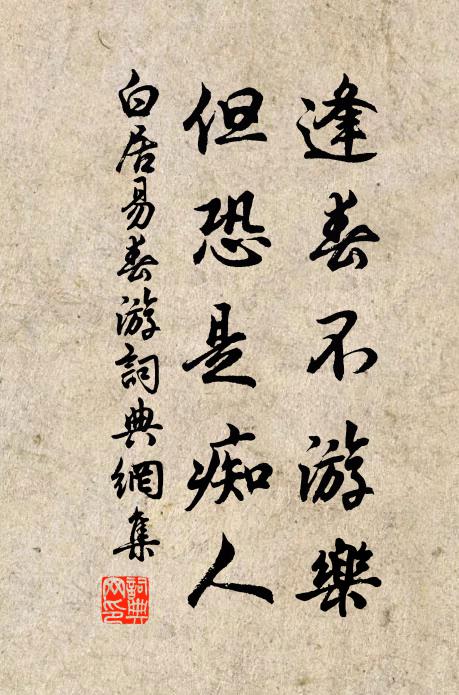 逢春不游樂
但恐是痴人
白居易春游詞典網集
詞典
网印